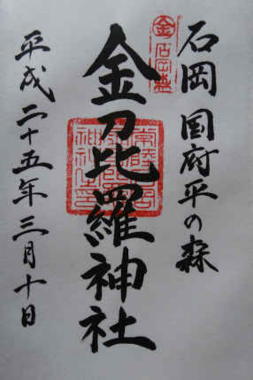 石岡 国府平の森
金刀比羅神社
平成二十五年三月十日